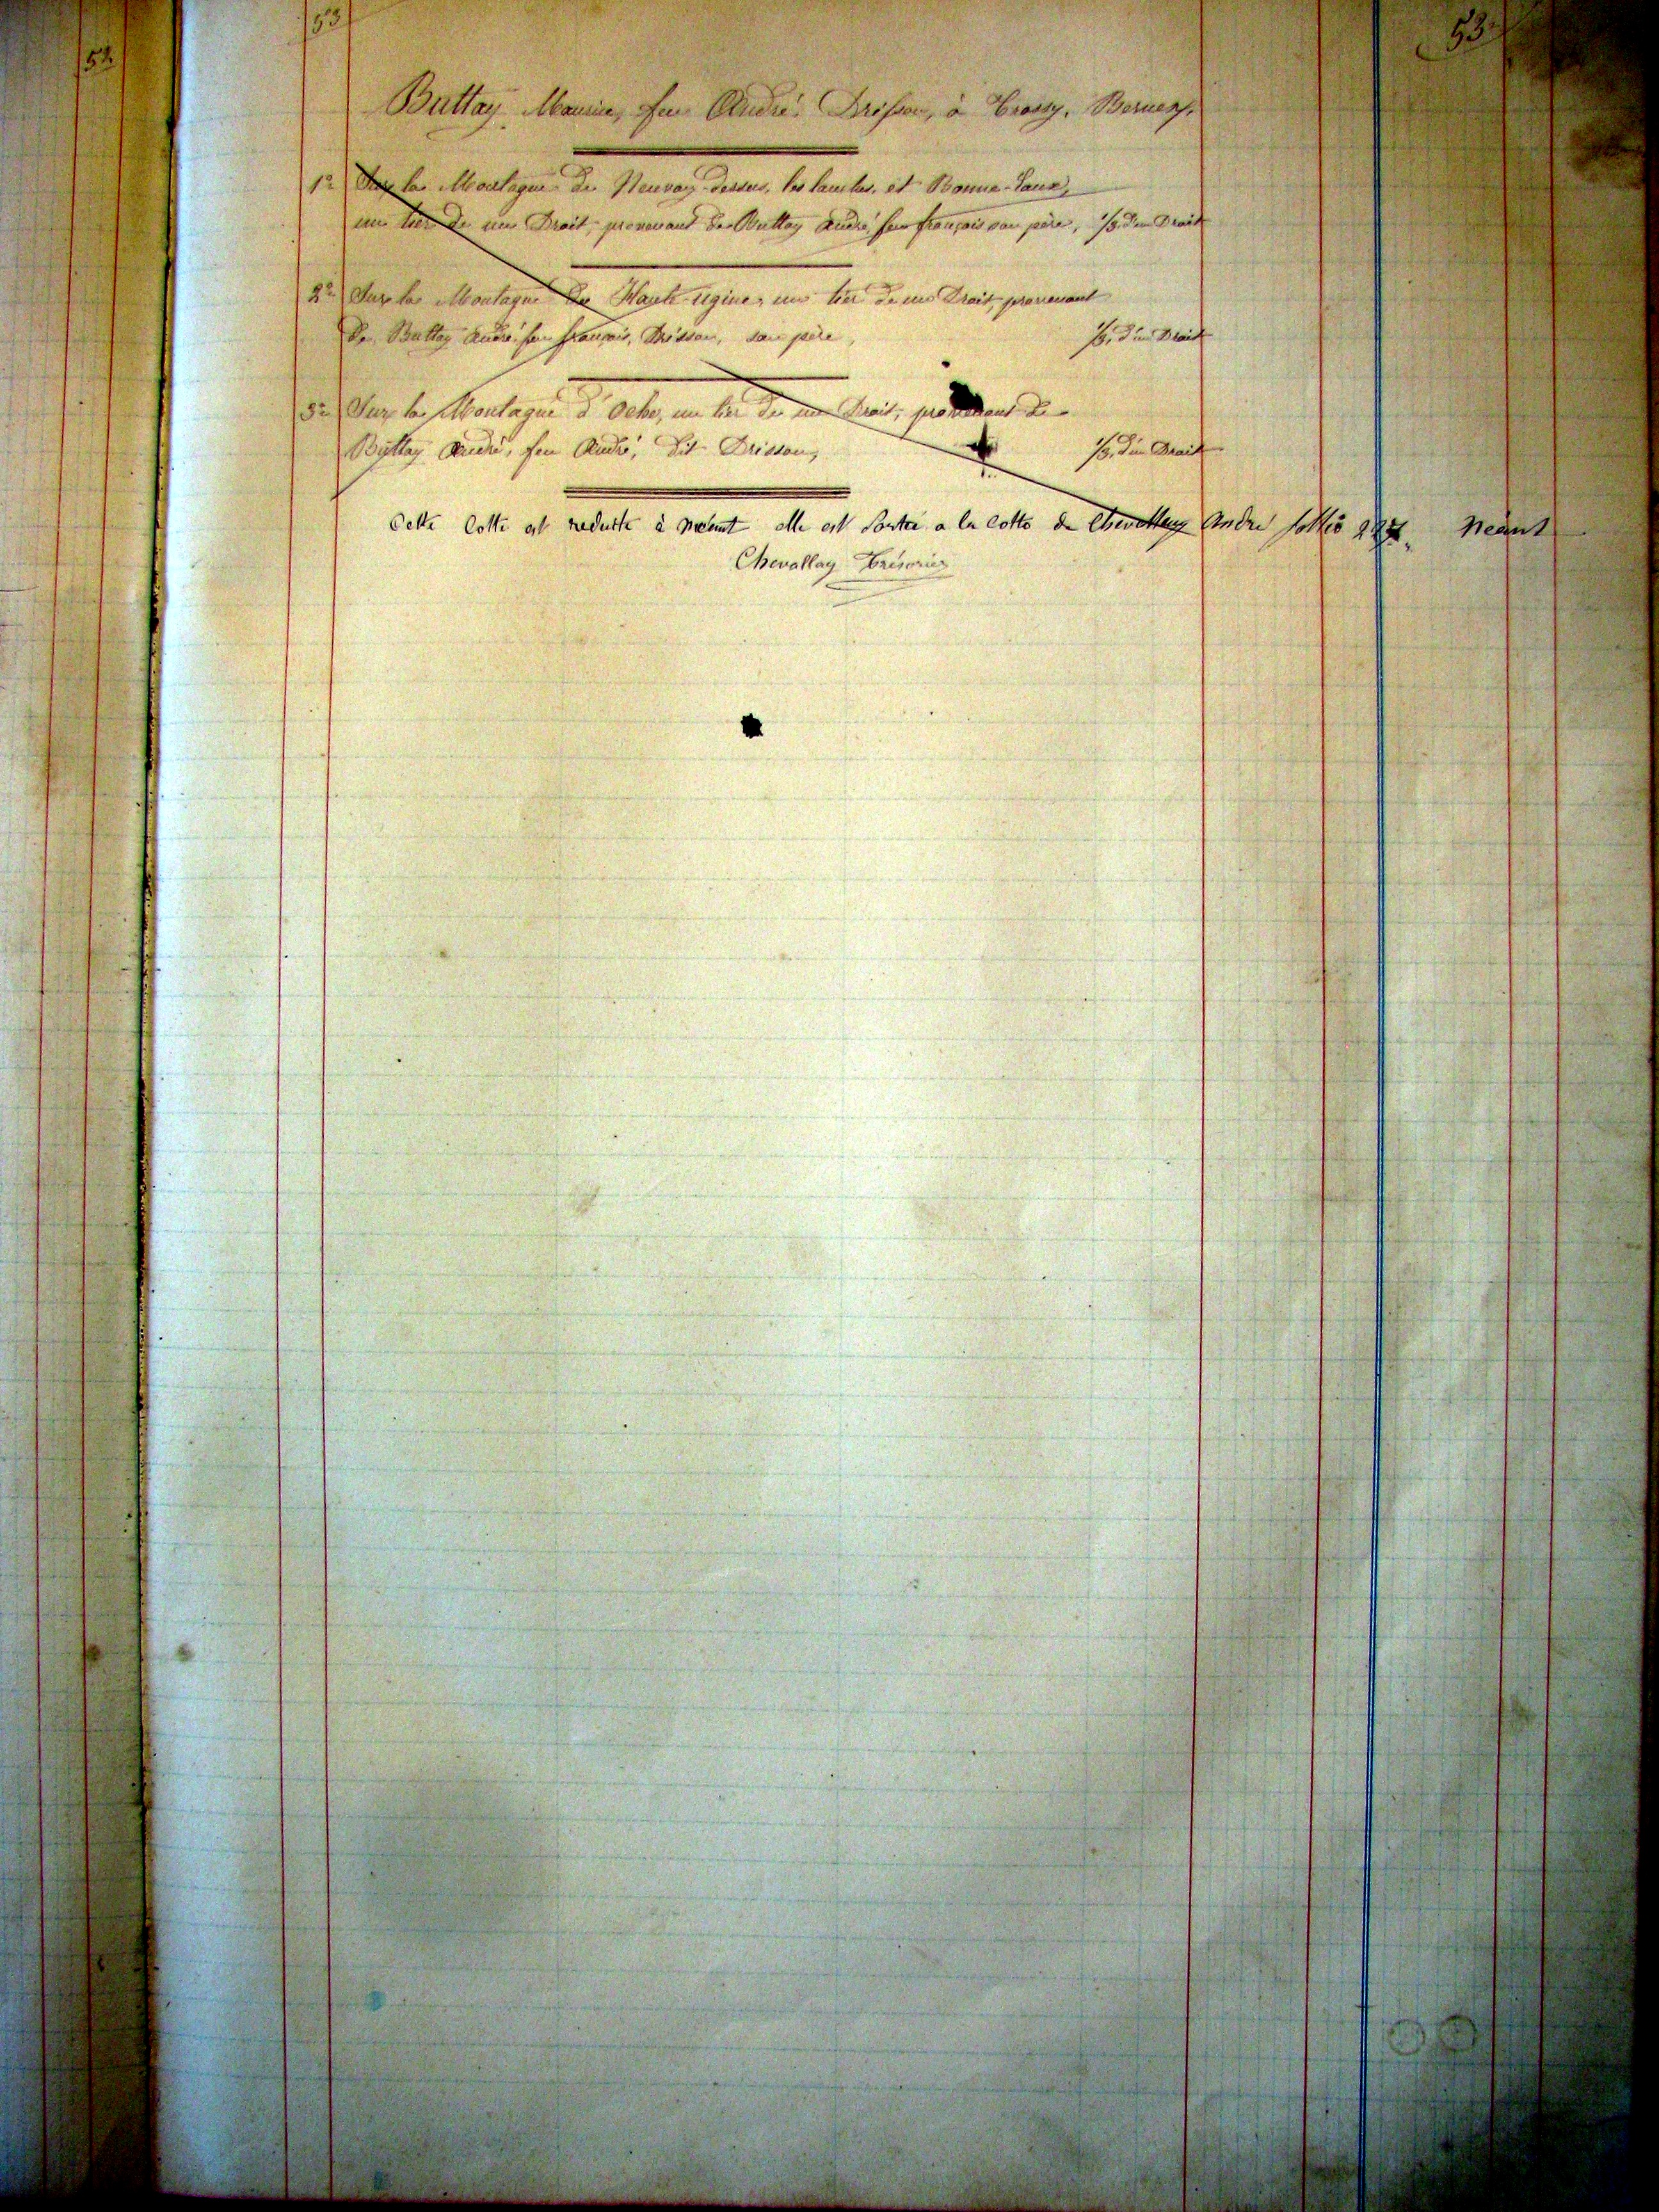 53
53
52
Buttay Maurice, feu André Drisson, à Trossy. Bernex.
1º Sur la Montagne de Neuvaz-dessus, les hauches, et Bonne-Eaux,
un tier de un Droit, provenant de Buttay André feu français son père, 1/3 d'un Droit
2º Sur la Montagne de Haute-ugine, un tier de un Droit, provenant
De Buttay André feu français, Drisson, son père, 1/3, d'un Droit
3º Sur la Montagne d'Oche, un tier de un Droit, provenant de
Buttay André, feu André, dit Drisson, 1/3, d'un Droit
Cette Cotte est reduitte à néant elle est Portée a la Cotte de Chevallay André follio Néant
Chevallay Trésorier